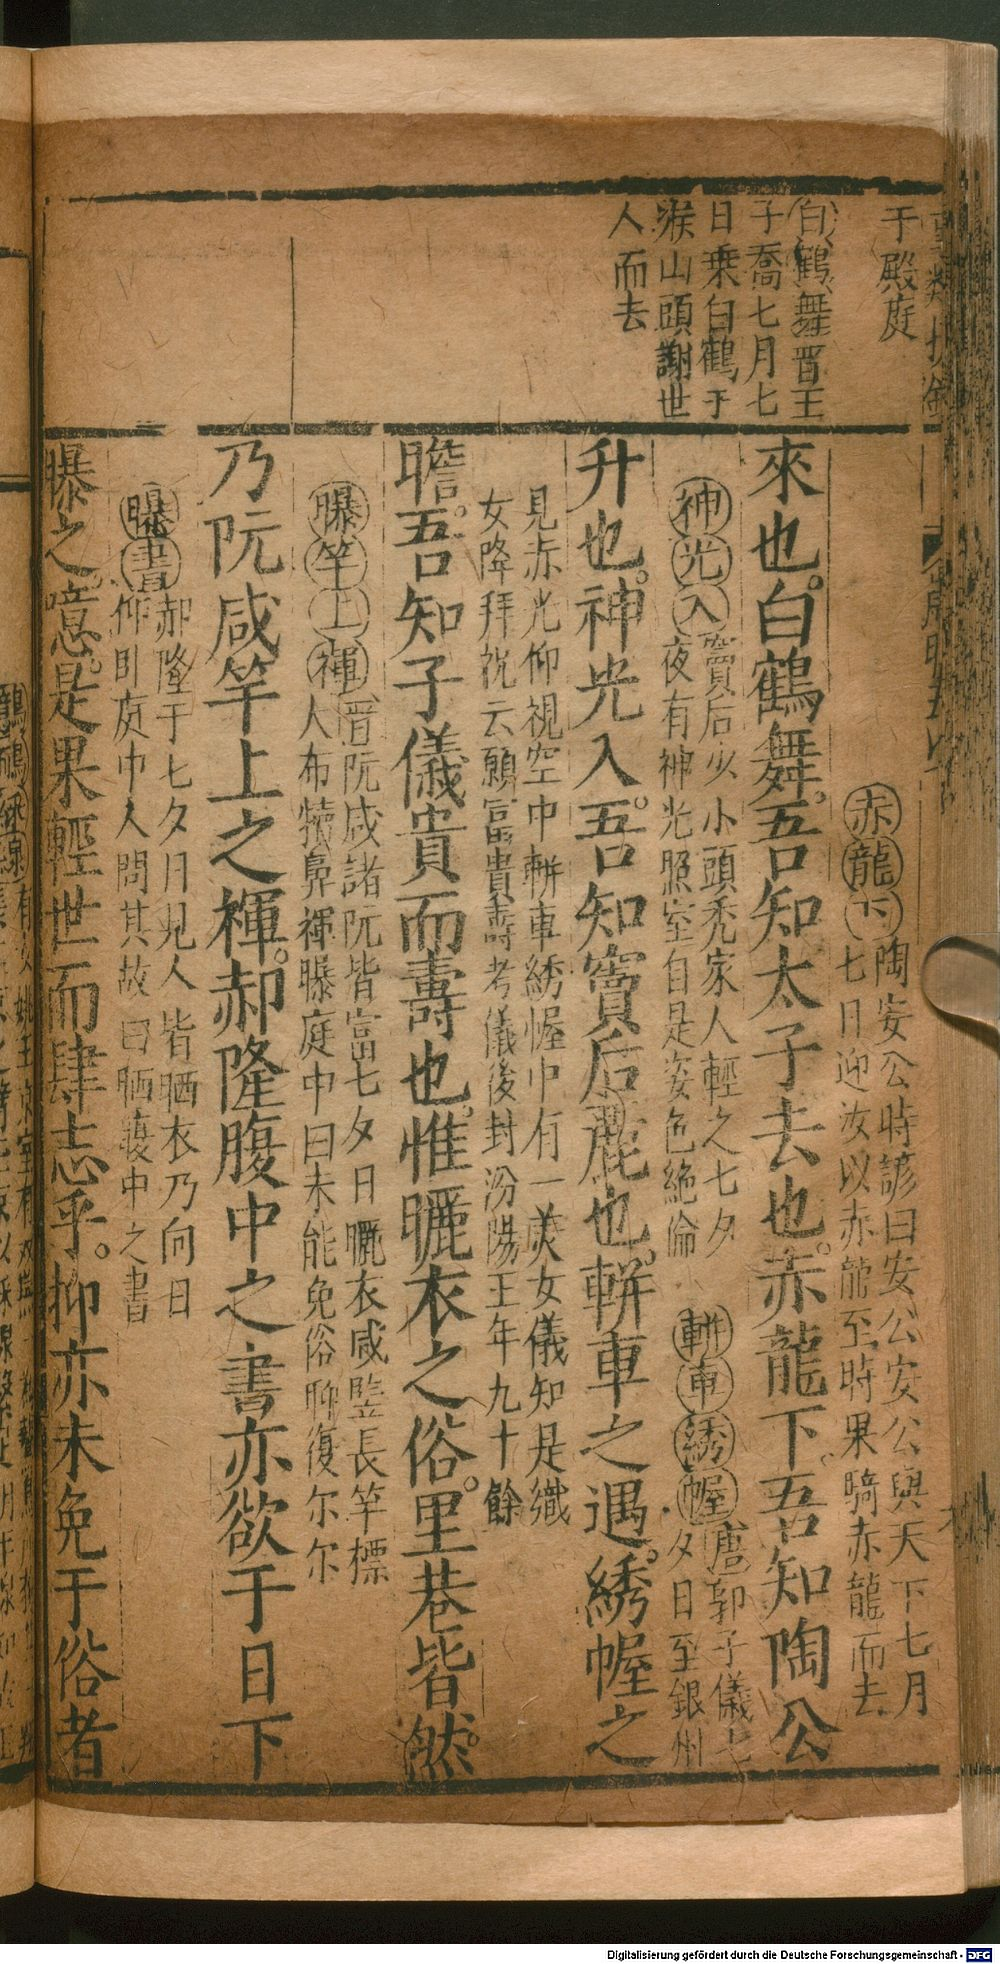 于殿庭
白鶴舞晋王
子喬七月七
日乗白鶴于
緱山頭謝世
人而去
赤龍下陶安公時諺曰安公安公與天下七月
七日迎汝以赤龍至時果騎赤龍而去
來也。白鶴舞。吾知太子去也。赤龍下。吾知陶公
神光入竇后少小頭禿家人輕之七夕
夜有神光照室自是姿色絶倫
軿車綉幄唐郭子儀七
夕日至銀州
升也。神光入。吾知竇后麗也。軿車之遇。綉幄之
見赤光仰視空中軿車綉幄中有一美女儀知是織
女降拜祝云願富貴壽考儀後封汾陽王年九十餘
瞻。吾知子儀貴而壽也。惟曬衣之俗。里巷皆然。
曝竿上褌晋阮咸諸阮皆富七夕日曬衣咸竪長竿標
人布犢鼻褌曝庭中曰未能免俗聊復尔尔
乃阮咸竿上之褌。郝隆腹中之書亦欲于日下
曝書郝隆于七夕月見人皆晒衣乃向日
仰卧庭中人問其故曰晒腹中之書
曝之。噫。是果輕世而肆志乎。抑亦未免于俗者
Digitalisierung gefördert durch die Deutsche Forschungsgemeinschaft - DFG